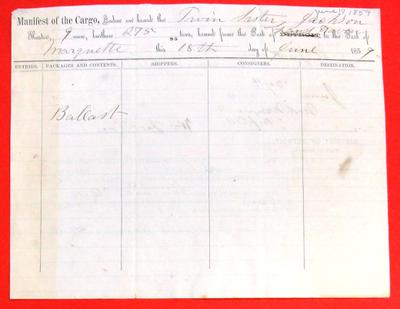 June 17, 1859
Manifest of the Cargo, laden on board the Twin Sister Jackson
Master, 9 men, burthen 275 tons, bound from the Port of to the Port of
Marquette this 18th day of June 1859
ENTRIES. PACKAGES AND CONTENTS. SHIPPERS. CONSIGNEES. DESTINATION.
Ballast